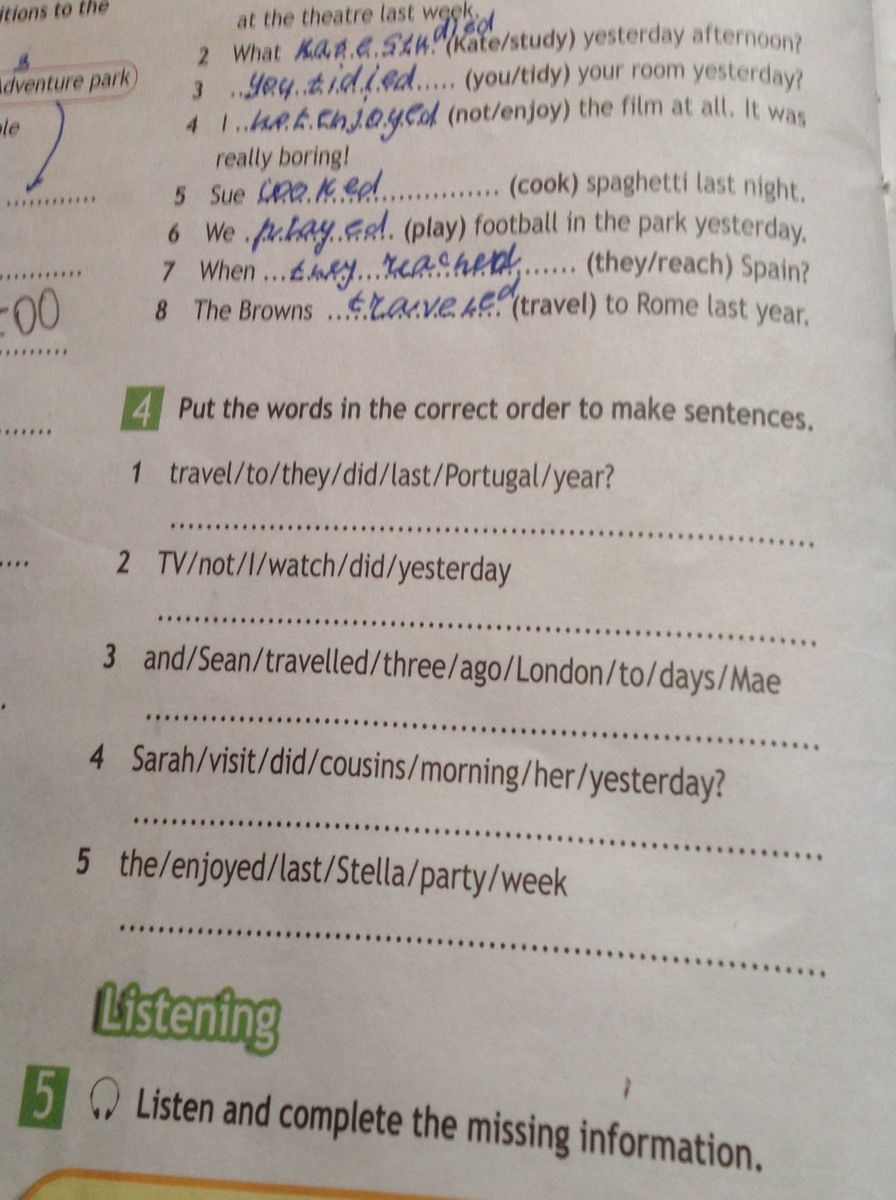 itions to the
at the theatre last week.
2 What Kate studied (Kate/study) yesterday afternoon?
B
Adventure park
3 ..you tidied..... (you/tidy) your room yesterday?
4 I ..not enjoyed (not/enjoy) the film at all. It was
really boring!
5 Sue cooked................ (cook) spaghetti last night.
6 We .played. (play) football in the park yesterday.
7 When ...they...reached...... (they/reach) Spain?
:00
8 The Browns ...traveled (travel) to Rome last year.
4 Put the words in the correct order to make sentences.
1 travel/to/they/did/last/Portugal/year?
2 TV/not/I/watch/did/yesterday
3 and/Sean/travelled/three/ago/London/to/days/Mae
4 Sarah/visit/did/cousins/morning/her/yesterday?
5 the/enjoyed/last/Stella/party/week
Listening
5 Listen and complete the missing information.